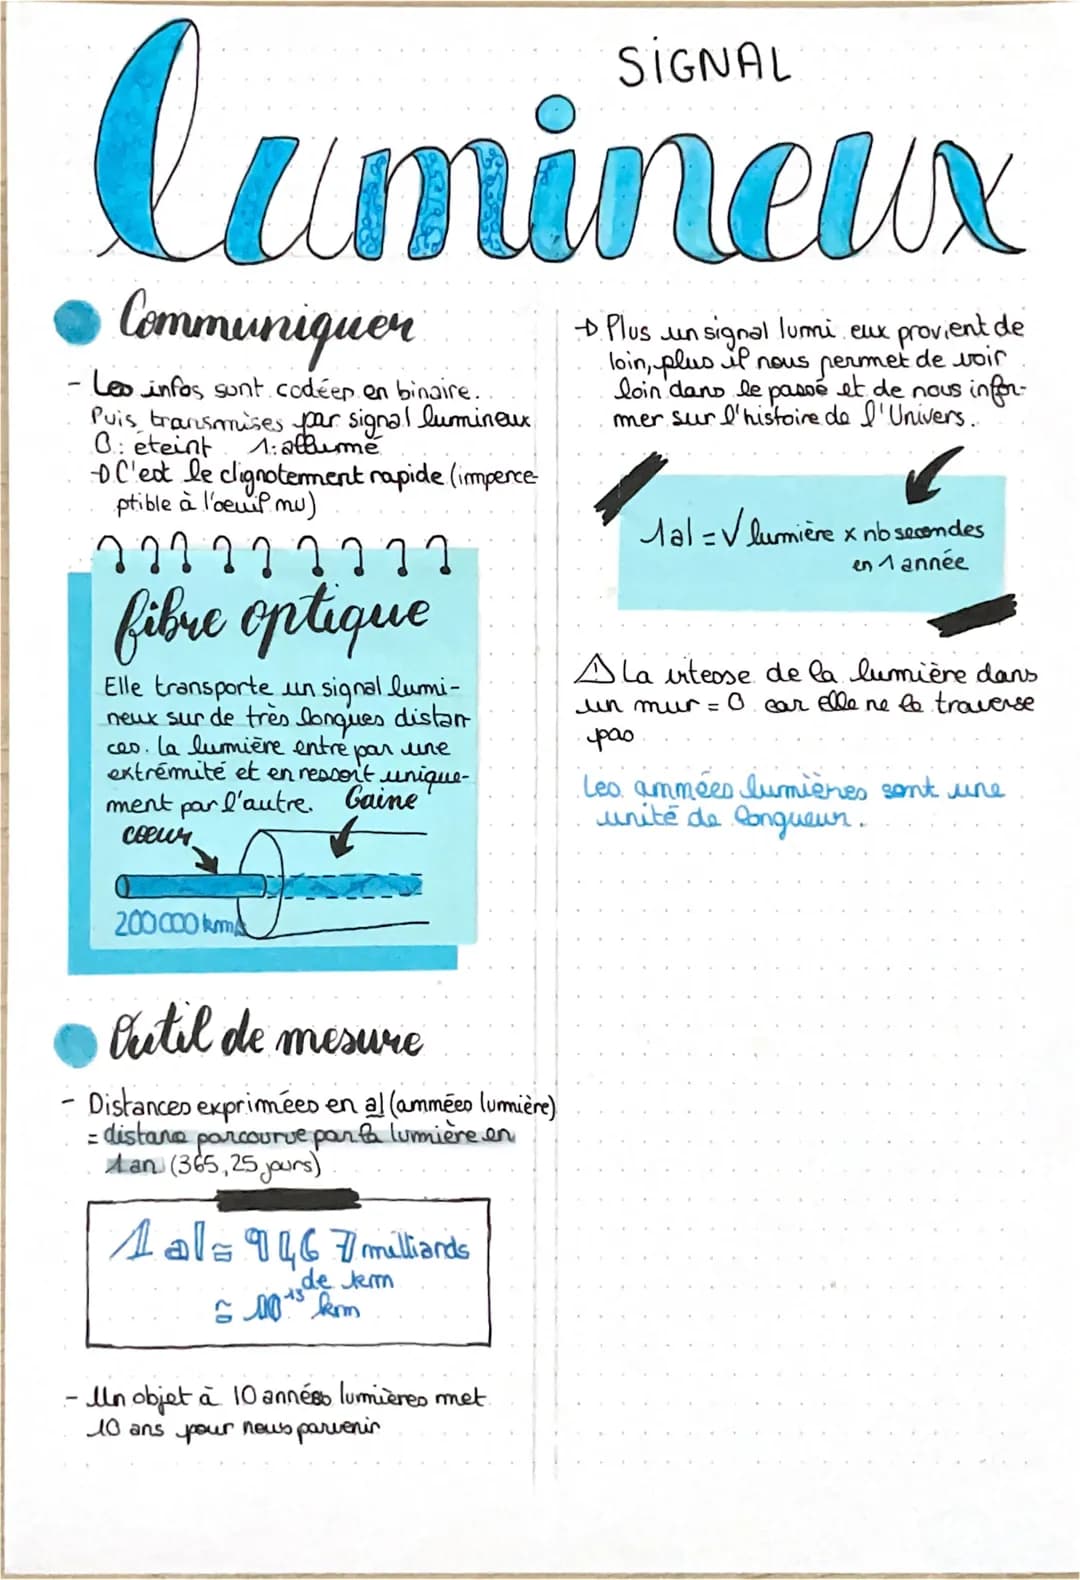 SIGNAL
lumineux
Communiquer
- Les infos sont codées en binaire.
Puis transmises par signal lumineux
0: éteint 1: allumé
→ C'est le clignotement rapide (imperce-
ptible à l'oeuil nu)
fibre optique
Elle transporte un signal lumi-
neux sur de très longues distan
ces. La lumière entre par une
extrémité et en ressort unique-
ment par l'autre. Gaine
coeur
200 000 km/s
Outil de mesure
- Distances exprimées en al (années lumière)
= distance parcourue par la lumière en
1 an (365,25 jours)
1 al ≃ 9467 milliards
de km
≃ 10¹³ km
- Un objet à 10 années lumières met
10 ans pour nous parvenir
→ Plus un signal lumi eux provient de
loin, plus il nous permet de voir
loin dans le passé et de nous infor-
mer sur l'histoire de l'Univers.
1al = √ lumière x nb secondes
en 1 année
⚠ La vitesse de la lumière dans
un mur = 0 car elle ne le traverse
pas
Les années lumières sont une
unité de longueur.